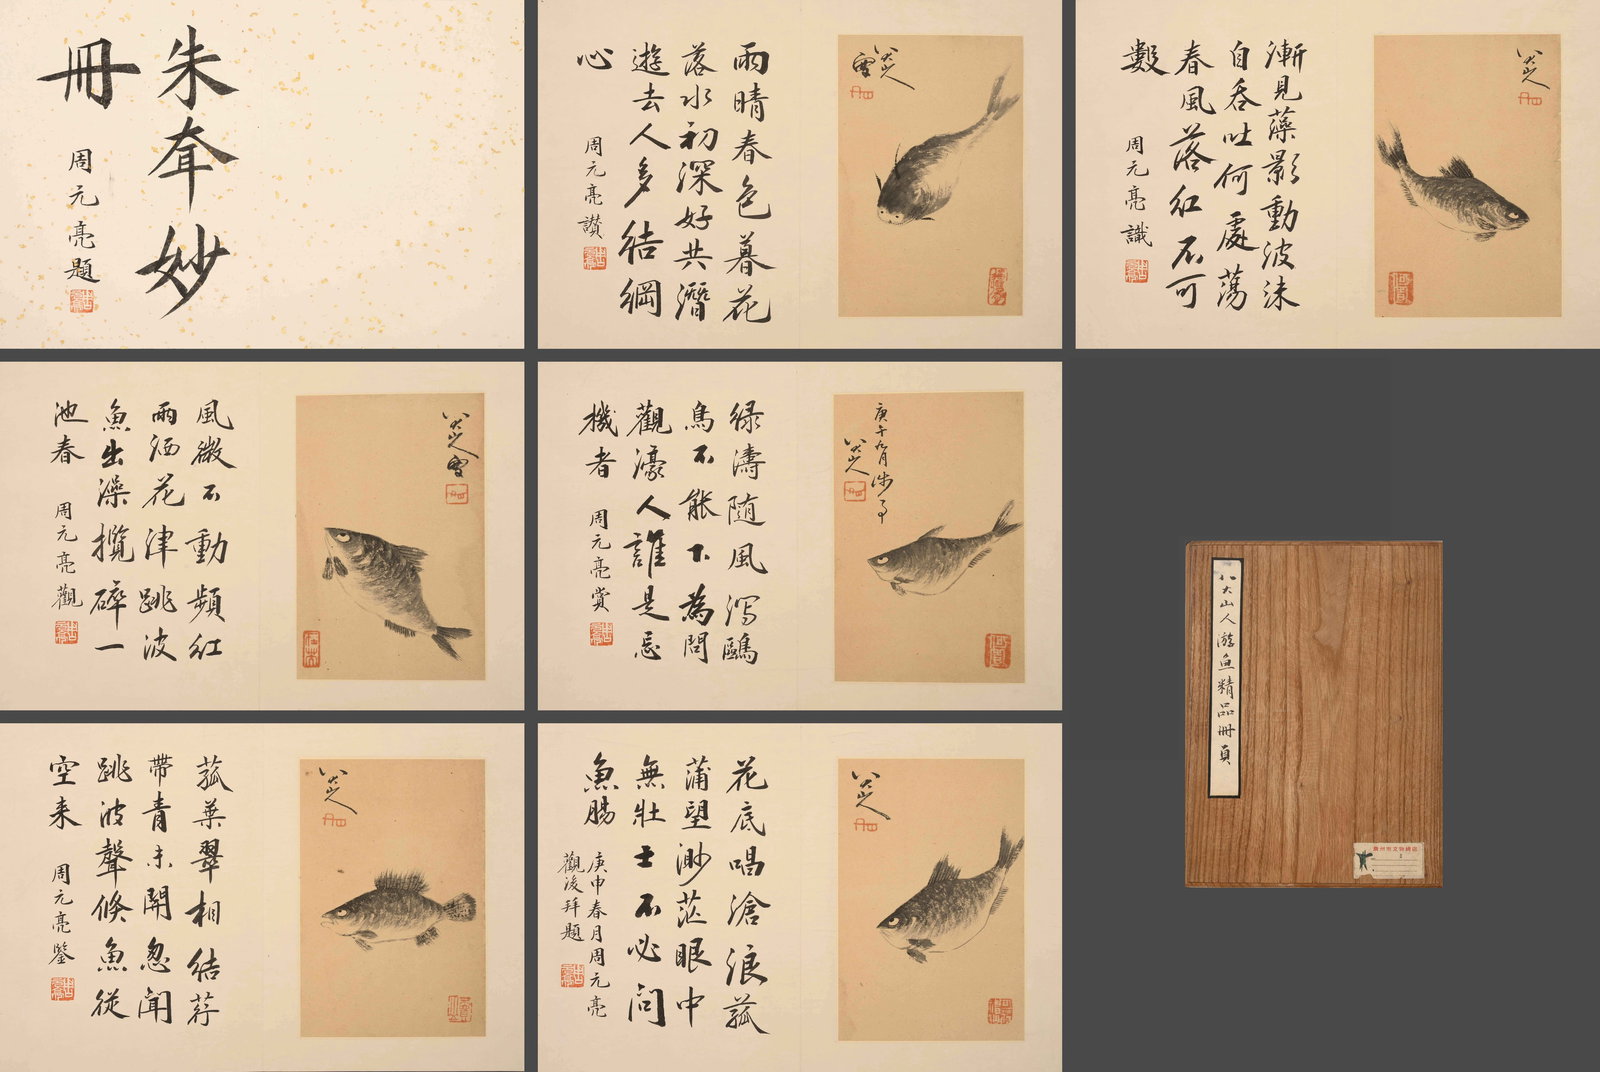 朱耷妙
冊
周元亮題
雨晴春色暮花
落水初深好共潛
遊去人多結網
心
周元亮讚
八大山人
漸見藻影動波沫
自吞吐何處蕩
春風落紅不可
數
周元亮識
八大山人
風微不動蘋紅
雨洒花津跳波
魚出澡攬碎一
池春
周元亮觀
八大山人
綠濤隨風瀉鷗
鳥不能下為問
觀濠人誰是忘
機者
周元亮賞
庚午九月涉事
八大山人
菰葉翠相結荇
帶青未開忽聞
跳波聲倏魚從
空来
周元亮鑒
八大山人
花底唱滄浪菰
蒲望渺茫眼中
無壯士不必問
魚腸
庚申春月周元亮
觀後拜題
八大山人
八大山人游魚精品冊頁